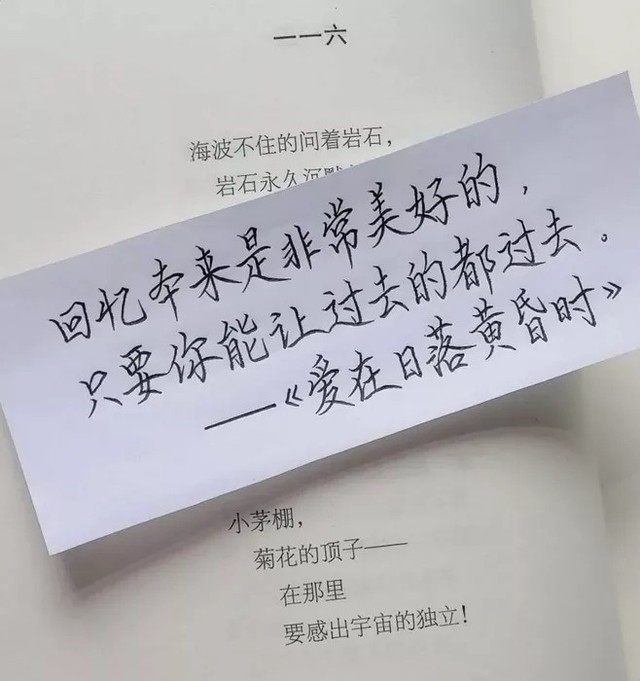 一一六
海波不住的问着岩石，
岩石永久沉默
回忆本来是非常美好的，
只要你能让过去的都过去。
——《爱在日落黄昏时》
小茅棚，
菊花的顶子——
在那里
要感出宇宙的独立！